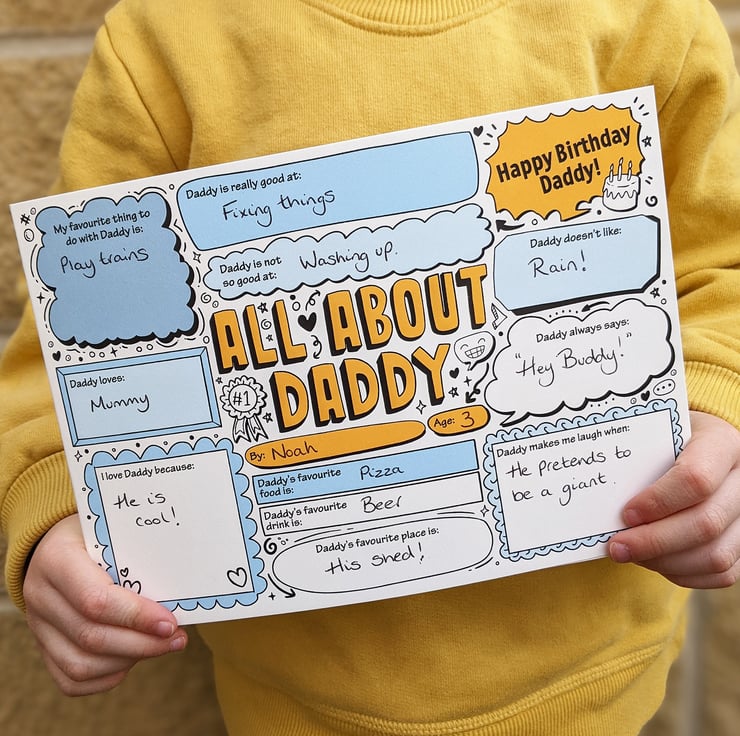 Happy Birthday
Daddy!
Daddy is really good at:
Fixing things
My favourite thing to
do with Daddy is:
Play trains
Daddy is not
so good at:
Washing up.
Daddy doesn't like:
Rain!
ALL ABOUT
DADDY
#1
Daddy always says:
"Hey Buddy!"
Daddy loves:
Mummy
By: Noah
Age: 3
I love Daddy because:
He is
cool!
Daddy's favourite
food is:
Pizza
Daddy's favourite
drink is:
Beer
Daddy's favourite place is:
His shed!
Daddy makes me laugh when:
He Pretends to
be a giant.